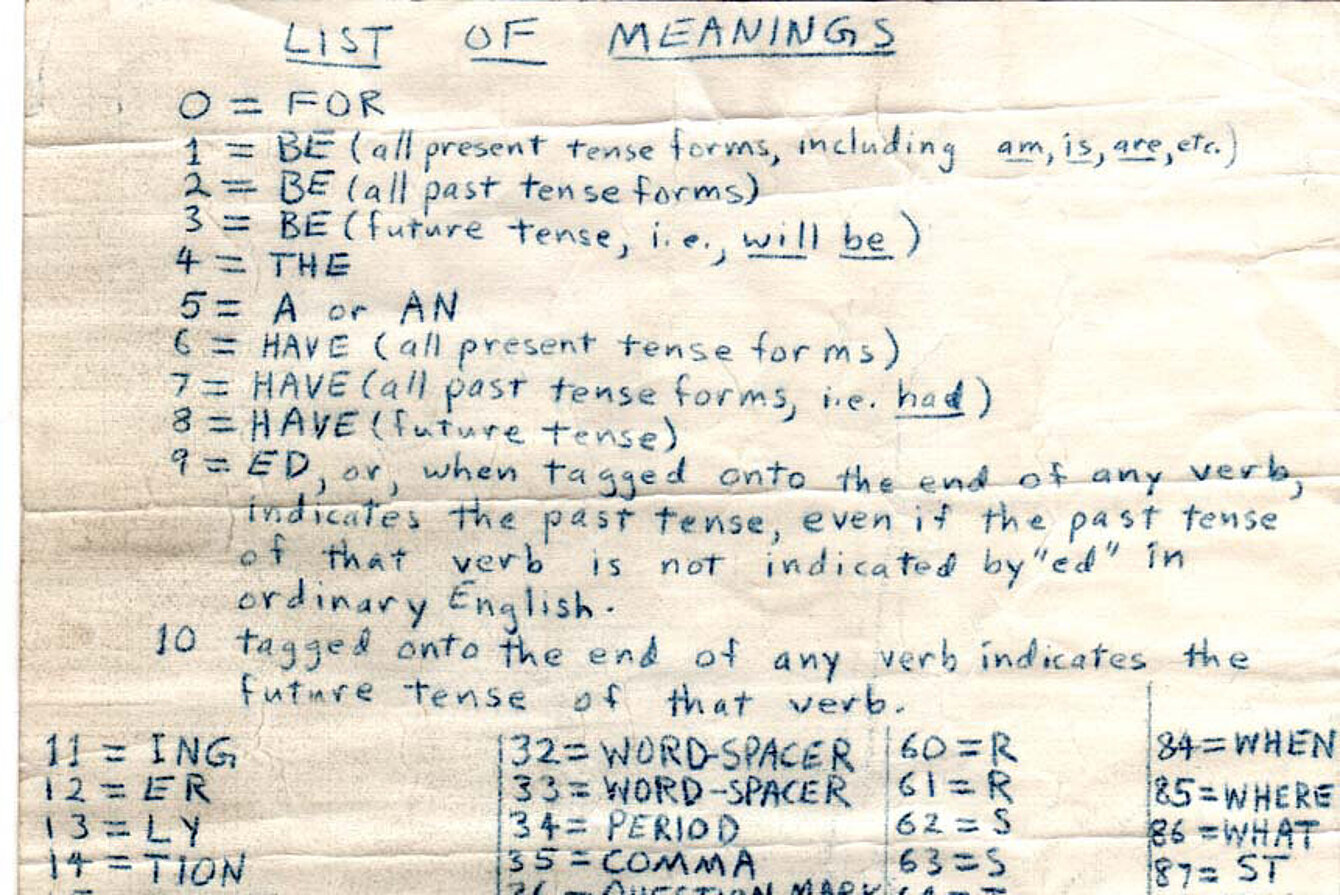 LIST OF MEANINGS
0 = FOR
1 = BE (all present tense forms, including am, is, are, etc.)
2 = BE (all past tense forms)
3 = BE (future tense, i.e., will be)
4 = THE
5 = A or AN
6 = HAVE (all present tense forms)
7 = HAVE (all past tense forms, i.e. had)
8 = HAVE (future tense)
9 = ED, or, when tagged onto the end of any verb,
indicates the past tense, even if the past tense
of that verb is not indicated by "ed" in
ordinary English.
10 tagged onto the end of any verb indicates the
future tense of that verb.
11 = ING
12 = ER
13 = LY
14 = TION
32 = WORD-SPACER
33 = WORD-SPACER
34 = PERIOD
35 = COMMA
QUESTION MARK
60 = R
61 = R
62 = S
63 = S
84 = WHEN
85 = WHERE
86 = WHAT
87 = ST